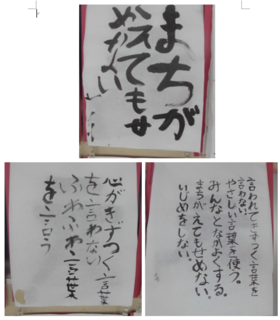 まちが
えてもせ
めかない
心がきずつく言葉
を言わない
ふわふわ言葉
を言おう
言われてきずつく言葉を
言わない。
やさしい言葉を使う。
みんなとなかよくする。
まちがえてもせめない。
いじめをしない。